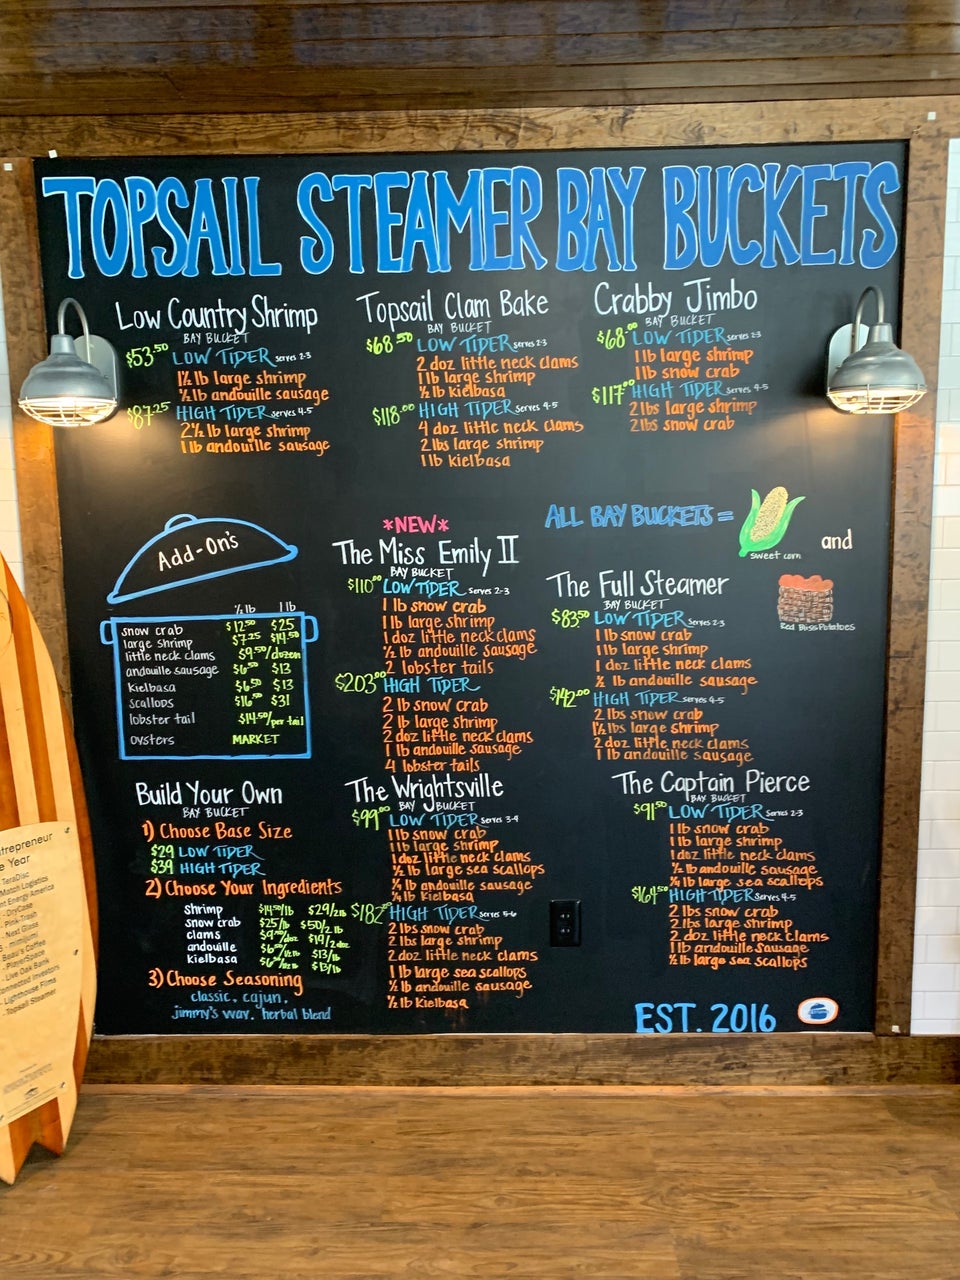 TOPSAIL STEAMER BAY BUCKETS
Low Country Shrimp
BAY BUCKET
$53.50 LOW TIDER serves 2-3
1½ lb large shrimp
½ lb andouille sausage
$87.25 HIGH TIDER serves 4-5
2½ lb large shrimp
1 lb andouille sausage
Topsail Clam Bake
BAY BUCKET
$68.50 LOW TIDER serves 2-3
2 doz little neck clams
1 lb large shrimp
½ lb kielbasa
$118.00 HIGH TIDER serves 4-5
4 doz little neck clams
2 lbs large shrimp
1 lb kielbasa
Crabby Jimbo
BAY BUCKET
$68.00 LOW TIDER serves 2-3
1 lb large shrimp
1 lb snow crab
$117.00 HIGH TIDER serves 4-5
2 lbs large shrimp
2 lbs snow crab
ALL BAY BUCKETS =
sweet corn
and
Red Bliss Potatoes
Add-On's
½ lb 1 lb
snow crab $12.50 $25
large shrimp $7.25 $14.50
little neck clams $9.50/dozen
andouille sausage $6.50 $13
Kielbasa $6.50 $13
scallops $16.50 $31
lobster tail $14.50/per tail
oysters MARKET
*NEW*
The Miss Emily II
BAY BUCKET
$110.00 LOW TIDER serves 2-3
1 lb snow crab
1 lb large shrimp
1 doz little neck clams
½ lb andouille sausage
2 lobster tails
$203.00 HIGH TIDER
2 lb snow crab
2 lb large shrimp
2 doz little neck clams
1 lb andouille sausage
4 lobster tails
The Full Steamer
BAY BUCKET
$83.50 LOW TIDER serves 2-3
1 lb snow crab
1 lb large shrimp
1 doz little neck clams
½ lb andouille sausage
$142.00 HIGH TIDER serves 4-5
2 lbs snow crab
1½ lbs large shrimp
2 doz little neck clams
1 lb andouille sausage
Build Your Own
BAY BUCKET
1) Choose Base Size
$29 LOW TIDER
$39 HIGH TIDER
2) Choose Your Ingredients
shrimp $14.50/lb $29/2lb
snow crab $25/lb $50/2 lb
clams /doz $19/2doz
andouille $13/lb
kielbasa $13/lb
3) Choose Seasoning
classic, cajun,
jimmy's way, herbal blend
The Wrightsville
BAY BUCKET
$99.00 LOW TIDER serves 3-4
1 lb snow crab
1 lb large shrimp
1 doz little neck clams
½ lb large sea scallops
¼ lb andouille sausage
¼ lb Kielbasa
$182.00 HIGH TIDER serves 5-6
2 lbs snow crab
2 lbs large shrimp
2 doz little neck clams
1 lb large sea scallops
½ lb andouille sausage
½ lb Kielbasa
The Captain Pierce
BAY BUCKET
$91.50 LOW TIDER serves 2-3
1 lb snow crab
1 lb large shrimp
1 doz little neck clams
½ lb andouille sausage
¼ lb large sea scallops
$164.50 HIGH TIDER serves 4-5
2 lbs snow crab
2 lbs large shrimp
2 doz little neck clams
1 lb andouille sausage
½ lb large sea scallops
EST. 2016
trepreneur
e Year
TeraDisc
Motch Logistics
nt Energy America
- DryCase
- Pink-Trash
- Next Glass
- mimijumi
Beau's Coffee
- PlayerSpace
- Live Oak Bank
onnected Investors
- Lighthouse Films
- Topsail Steamer